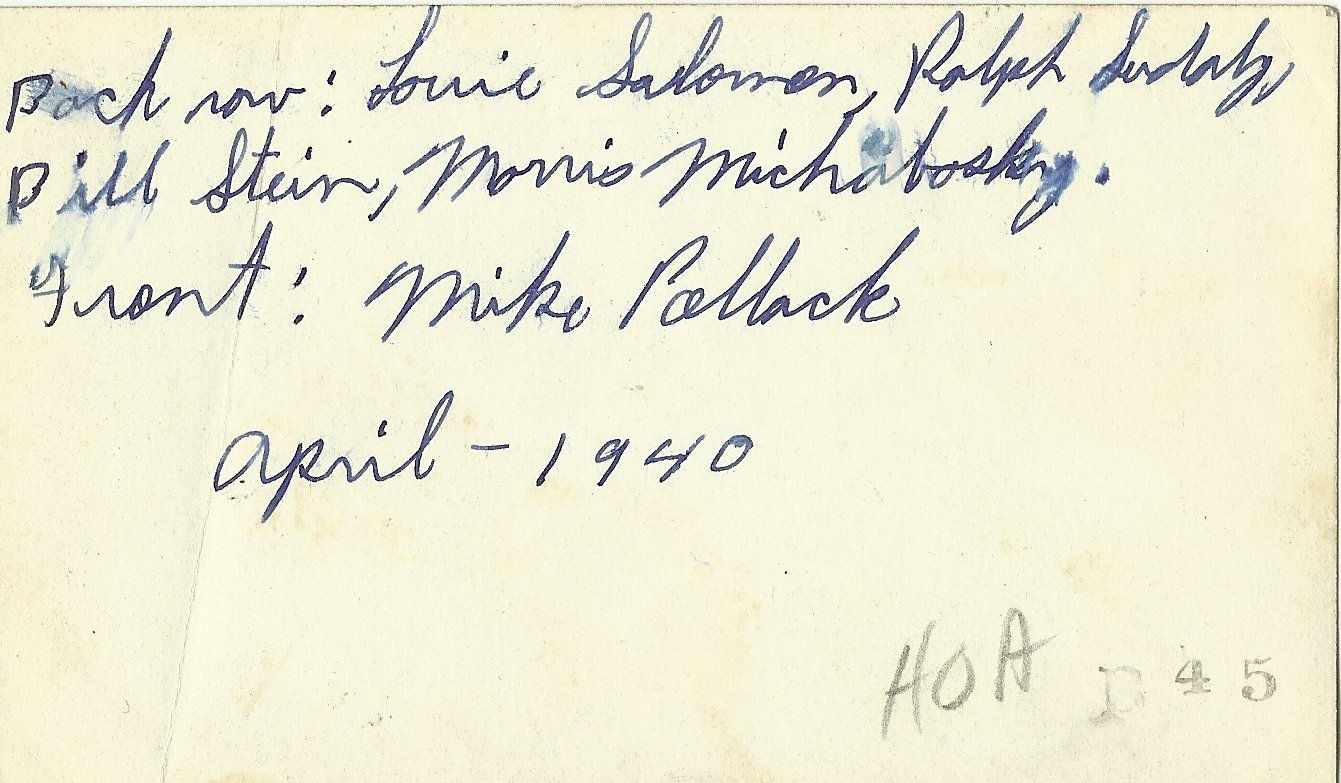 Back row: Louie Salomon, Ralph
Bill Stein, Morris Michabosky.
Front: Mike Pollack
April - 1940
HOA 45